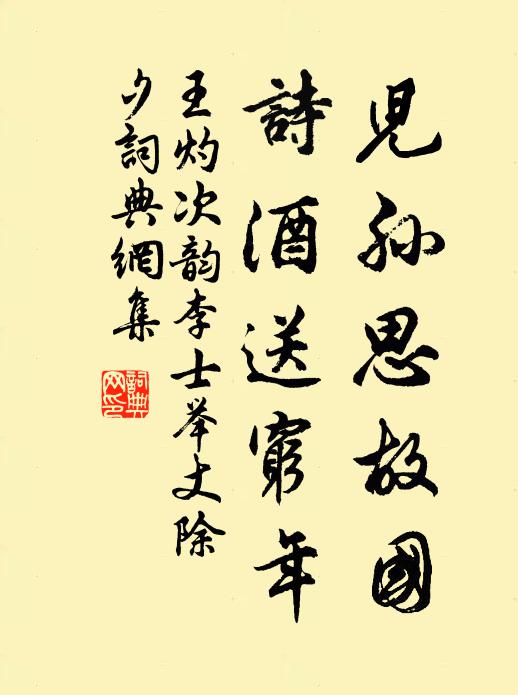 兒孙思故國
詩酒送窮年
王灼次韵李士举丈除
夕詞典網集
詞典
网印